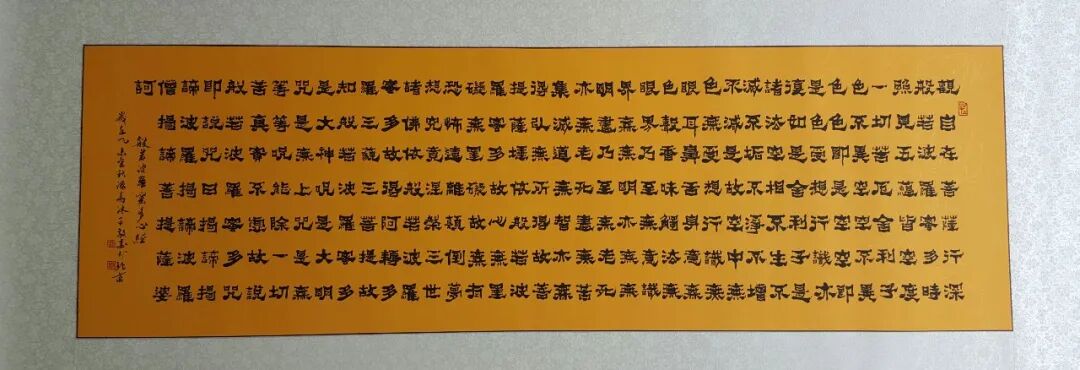 觀自在菩薩行深
般若波羅蜜多時
照見五蘊皆空度
一切苦厄舍利子
色不異空空不異
色色即是空空即
是色受想行識亦
復如是舍利子是
諸法空相不生不
滅不垢不淨不增
不減是故空中無
色無受想行識無
眼耳鼻舌身意無
色聲香味觸法無
眼界乃至無意識
界無無明亦無無
明盡乃至無老死
亦無老死盡無苦
集滅道無智亦無
得以無所得故菩
提薩埵依般若波
羅蜜多故心無罣
礙無罣礙故無有
恐怖遠離顛倒夢
想究竟涅槃三世
諸佛依般若波羅
蜜多故得阿耨多
羅三藐三菩提故
知般若波羅蜜多
是大神咒是大明
咒是無上咒是無
等等呪能除一切
苦真實不虛故說
般若波羅蜜多咒
即說咒曰揭諦揭
諦波羅揭諦波羅
僧揭諦菩提薩婆
訶
般若波羅蜜多心經
歲在乙未金秋